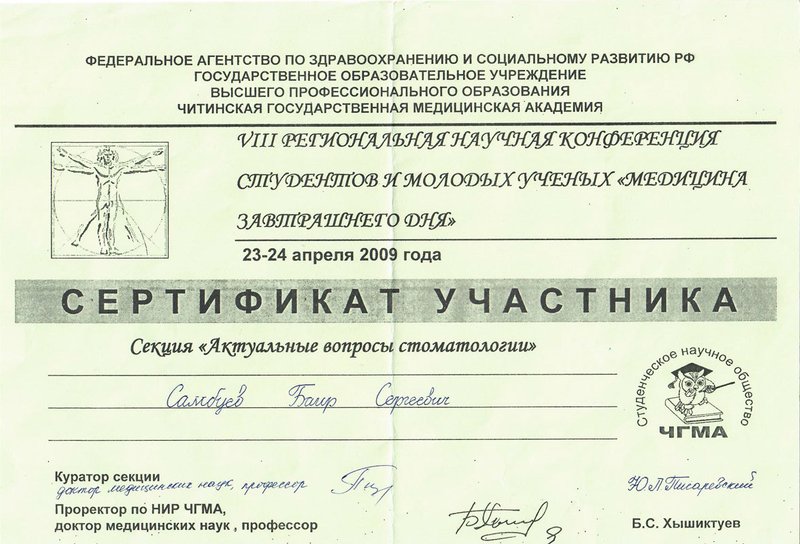 ФЕДЕРАЛЬНОЕ АГЕНТСТВО ПО ЗДРАВООХРАНЕНИЮ И СОЦИАЛЬНОМУ РАЗВИТИЮ РФ
ГОСУДАРСТВЕННОЕ ОБРАЗОВАТЕЛЬНОЕ УЧРЕЖДЕНИЕ
ВЫСШЕГО ПРОФЕССИОНАЛЬНОГО ОБРАЗОВАНИЯ
ЧИТИНСКАЯ ГОСУДАРСТВЕННАЯ МЕДИЦИНСКАЯ АКАДЕМИЯ
VIII РЕГИОНАЛЬНАЯ НАУЧНАЯ КОНФЕРЕНЦИЯ
СТУДЕНТОВ И МОЛОДЫХ УЧЕНЫХ «МЕДИЦИНА
ЗАВТРАШНЕГО ДНЯ»
23-24 апреля 2009 года
СЕРТИФИКАТ УЧАСТНИКА
Секция «Актуальные вопросы стоматологии»
Самбуев Баир Сергеевич
Студенческое научное общество
ЧГМА
Куратор секции
доктор медицинских наук, профессор
Ю Л Писаревский
Проректор по НИР ЧГМА,
доктор медицинских наук , профессор
Б.С. Хышиктуев